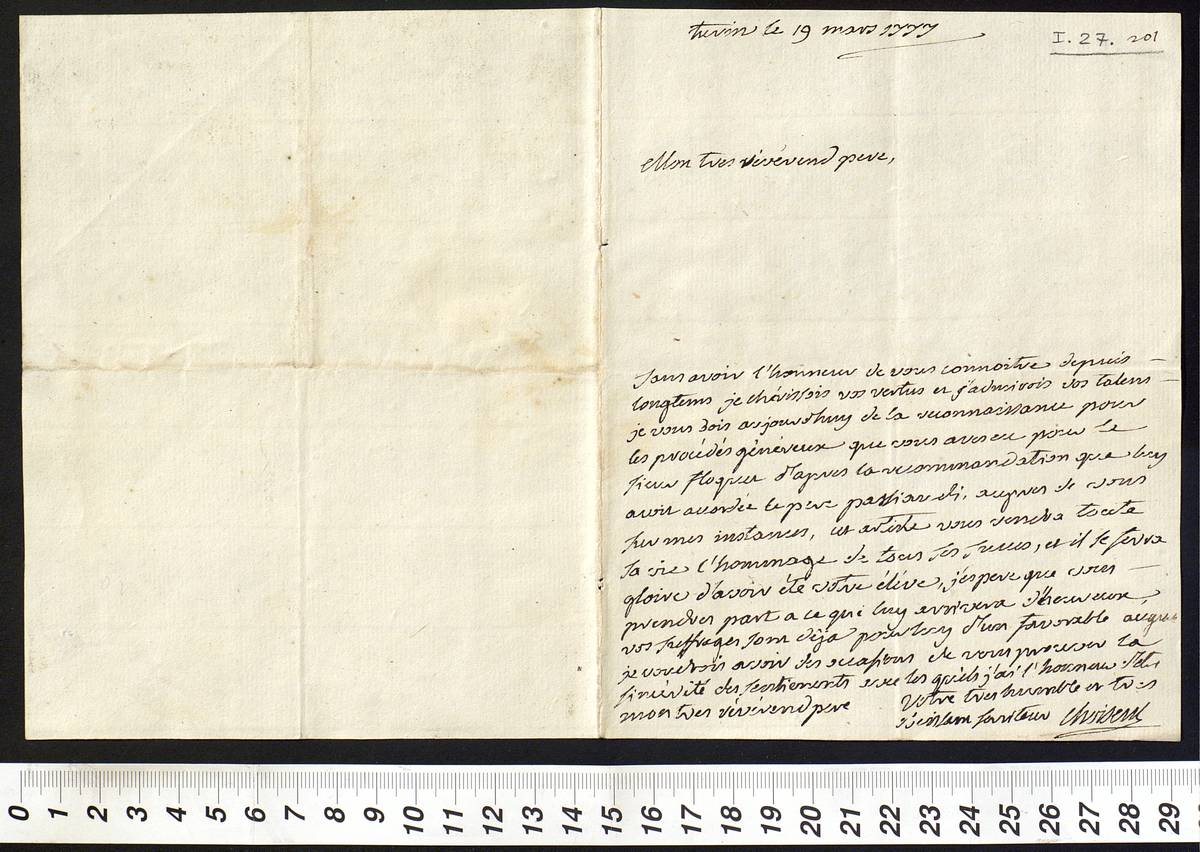 turin le 19 mars 1777
I. 27. 201
Mon tres révérend pere,
sans avoir l'honneur de vous connoitre depuis
longtems je chérissois vos vertus et j'admirois vos talens
je vous dois aujourd'huy de la reconnaissance pour
les procédés généreux que vous avez eu pour le
sieur floquet d'apres la recommandation que luy
avoit accordée le pere paciaudi, aupres de vous
sur mes instances, cet artiste vous rendra toute
sa vie l'hommage de tous ses succes, et il se fera
gloire d'avoir été votre éléve, j'espere que vous
prendres part a ce qui luy arrivera d'heureux,
vos suffrages sont deja pour luy d'un favorable augure
je voudrois avoir des occasions de vous prouver la
sincérité des sentiments avec les quels j'ai l'honneur d'etre
mon tres révérend pere
Votre tres humble et tres
obeissant serviteur
0 1 2 3 4 5 6 7 8 9 10 11 12 13 14 15 16 17 18 19 20 21 22 23 24 25 26 27 28 29